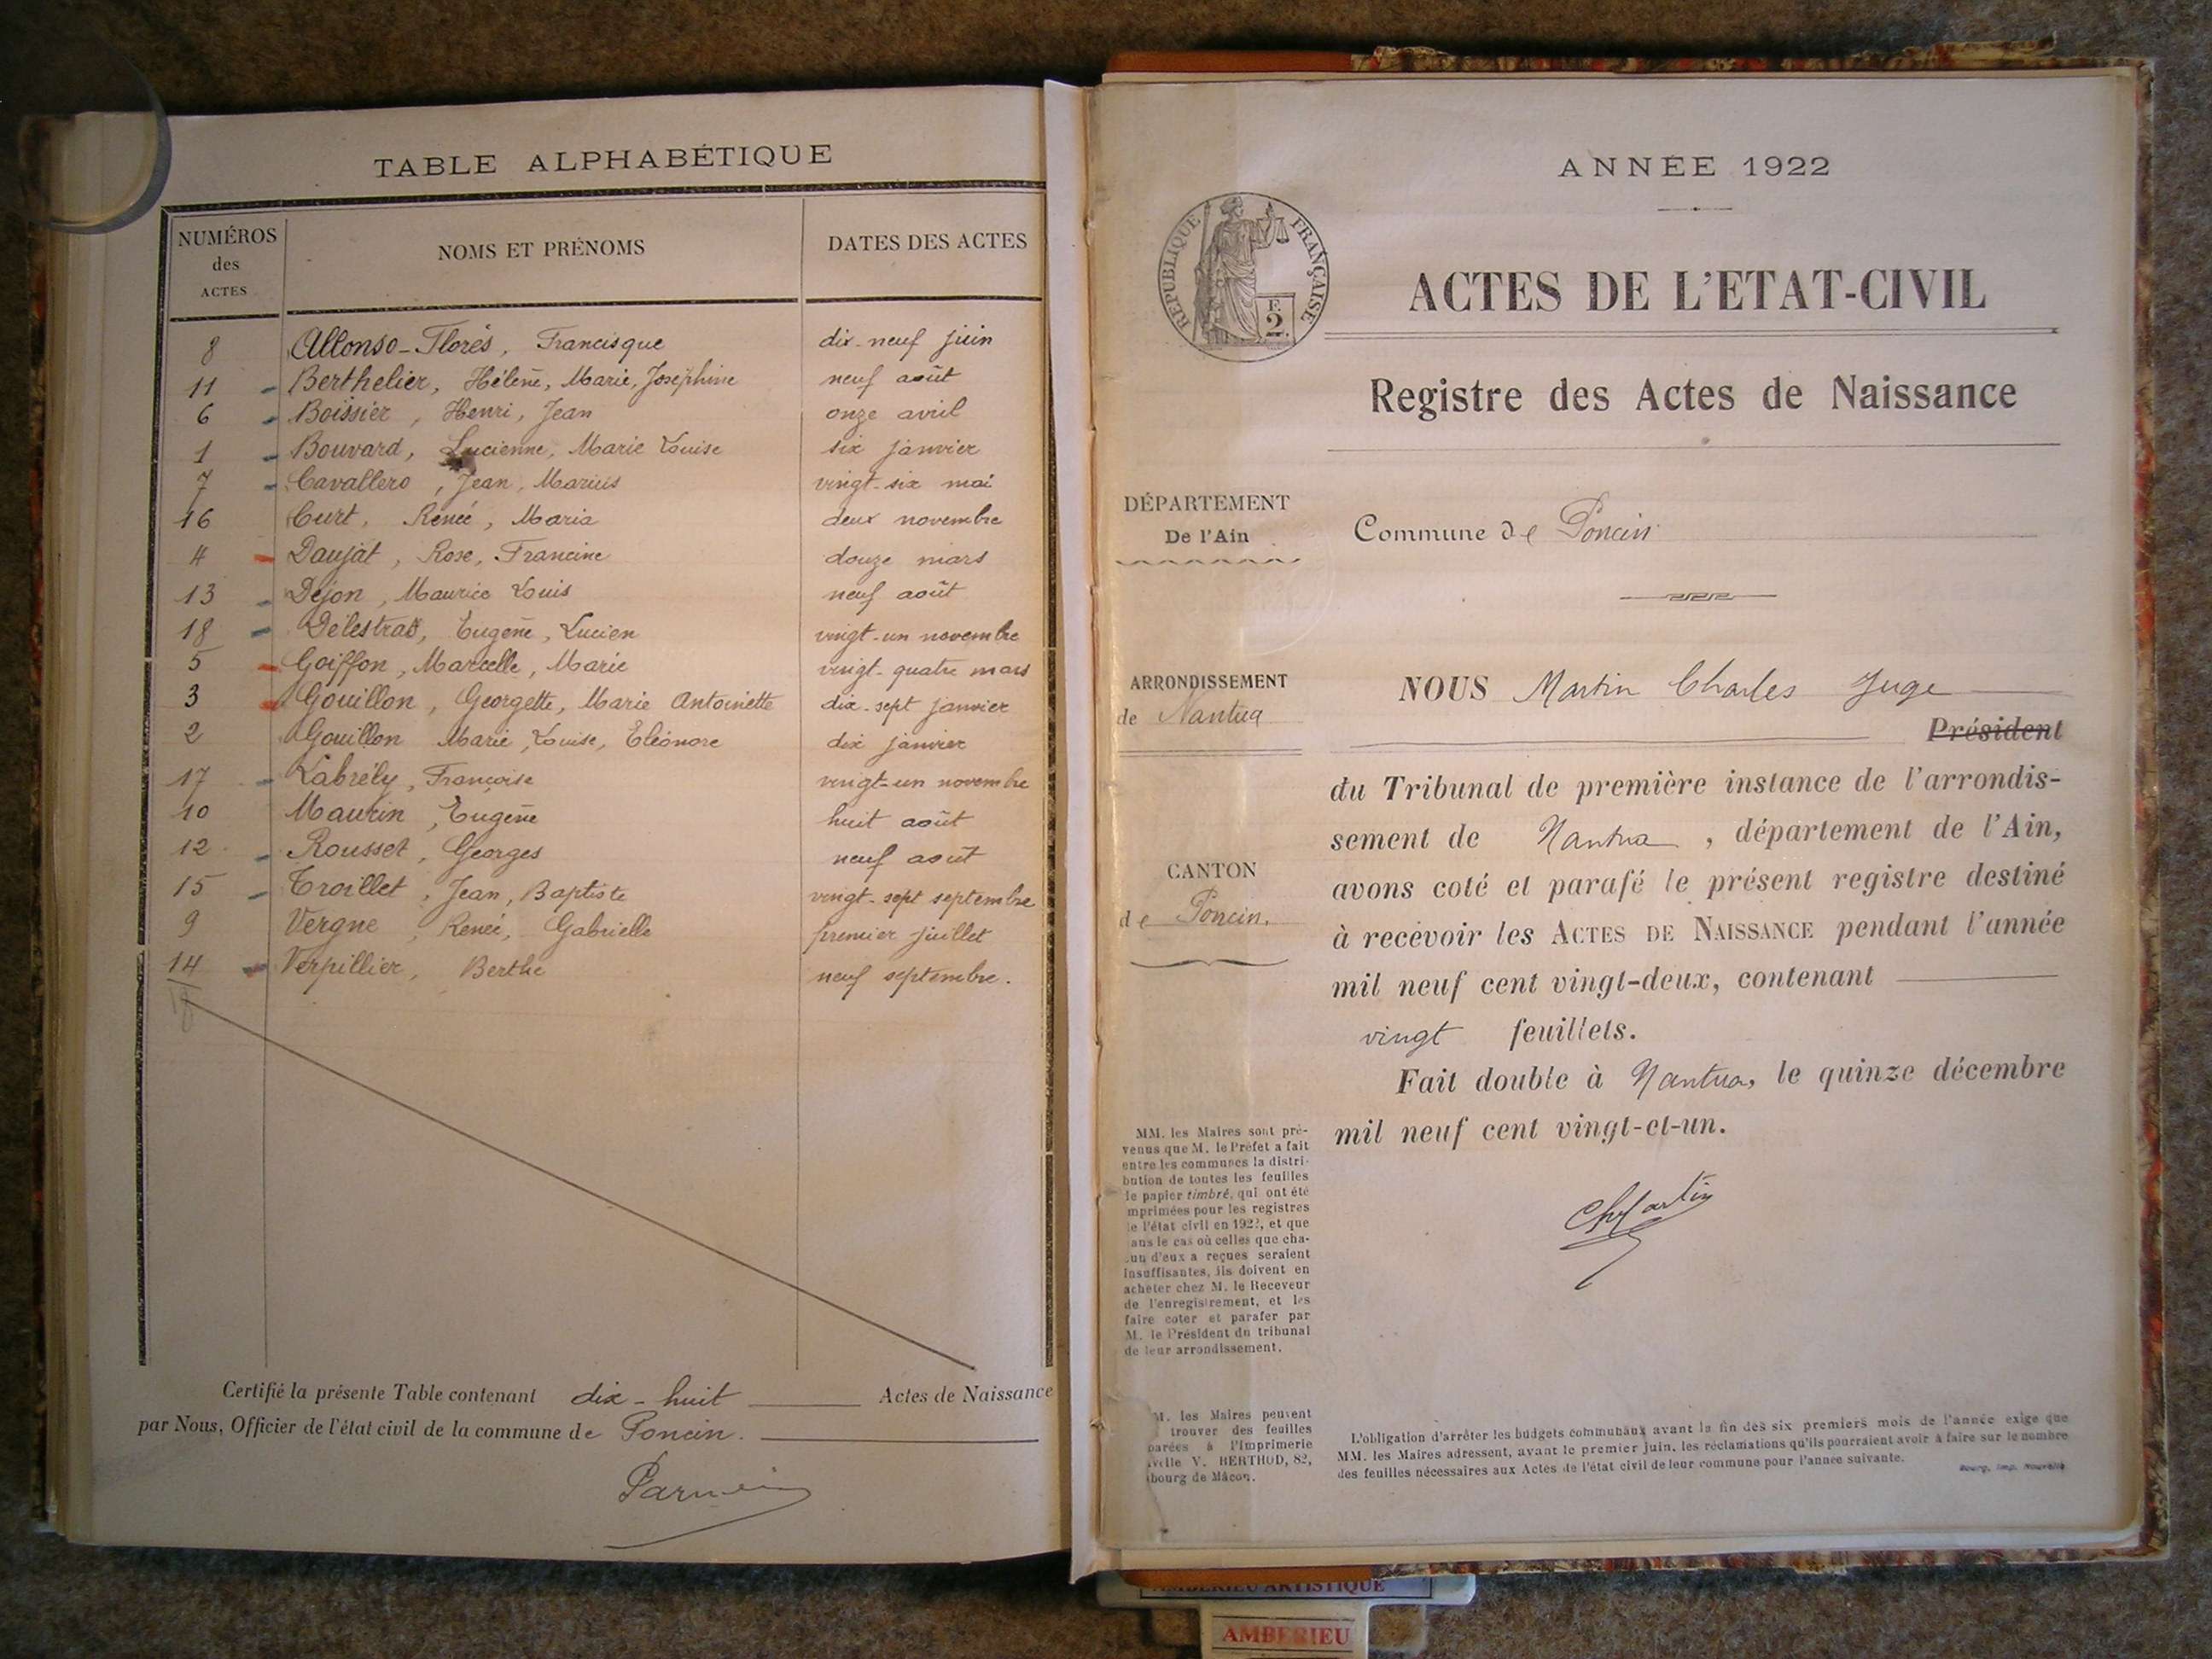 TABLE ALPHABÉTIQUE
NUMÉROS des ACTES NOMS ET PRÉNOMS DATES DES ACTES
8 Allonso-Florès, Francisque dix-neuf juin
11 Berthelier, Hélène, Marie, Joséphine neuf août
6 Boissier, Henri, Jean onze avril
1 Bouvard, Lucienne, Marie Louise six janvier
7 Cavallero, Jean, Marius vingt-six mai
16 Curt, Renée, Maria deux novembre
4 Daujat, Rose, Francine douze mars
13 Dejon, Maurice Louis neuf août
18 Délestras, Eugène, Lucien vingt-un novembre
5 Goiffon, Marcelle, Marie vingt-quatre mars
3 Gouillon, Georgette, Marie Antoinette dix-sept janvier
2 Gouillon Marie, Louise, Eléonore dix janvier
17 Labrély, Françoise vingt-un novembre
10 Maurin, Eugène huit août
12 Rousset, Georges neuf août
15 Troillet, Jean, Baptiste vingt-sept septembre
9 Vergne, Renée, Gabrielle premier juillet
14 Verpillier, Berthe neuf septembre.
Certifié la présente Table contenant dix-huit Actes de Naissance
par Nous, Officier de l'état civil de la commune de Poncin.
ANNÉE 1922
RÉPUBLIQUE FRANÇAISE
F. 2
ACTES DE L'ETAT-CIVIL
Registre des Actes de Naissance
DÉPARTEMENT
De l'Ain
Commune de Poncin
ARRONDISSEMENT
de Nantua
CANTON
de Poncin.
NOUS Martin Charles Juge
Président
du Tribunal de première instance de l'arrondis-
sement de Nantua, département de l'Ain,
avons coté et parafé le présent registre destiné
à recevoir les ACTES DE NAISSANCE pendant l'année
mil neuf cent vingt-deux, contenant
vingt feuillets.
Fait double à Nantua, le quinze décembre
mil neuf cent vingt-et-un.
ChMartin
MM. les Maires sont pré-
venus que M. le Préfet a fait
entre les communes la distri-
bution de toutes les feuilles
de papier timbré, qui ont été
mprimées pour les registres
e l'état civil en 1922, et que
ans le cas où celles que cha-
un d'eux a reçues seraient
insuffisantes, ils doivent en
acheter chez M. le Receveur
de l'enregistrement, et les
faire coter et parafer par
M. le Président du tribunal
de leur arrondissement.
M. les Maires peuvent
trouver des feuilles
parées à l'Imprimerie
velle V. BERTHOD, 82,
bourg de Mâcon.
L'obligation d'arrêter les budgets communaux avant la fin des six premiers mois de l'année exige que
MM. les Maires adressent, avant le premier juin, les réclamations qu'ils pourraient avoir à faire sur le nombre
des feuilles nécessaires aux Actes de l'état civil de leur commune pour l'année suivante.
Bourg, Imp. Nouvelle
AMBERIEU ARTISTIQUE
AMBERIEU